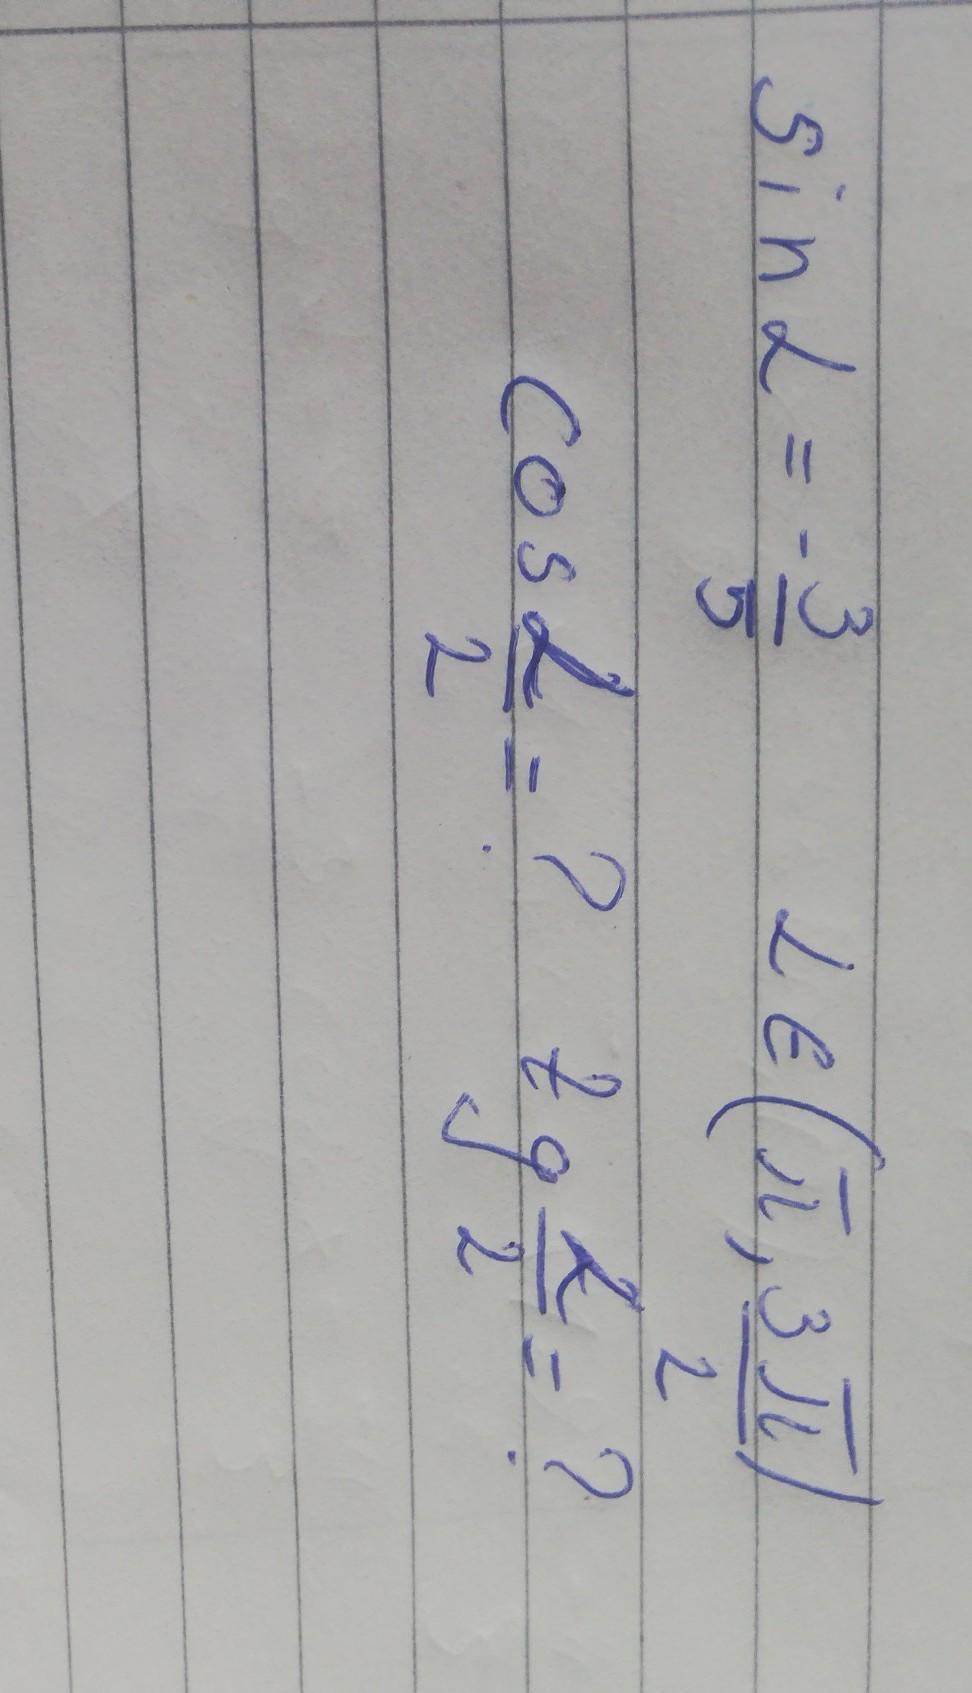 sin α = -3/5 α ∈ (π, 3π/2)
cos α/2 = ? tg α/2 = ?